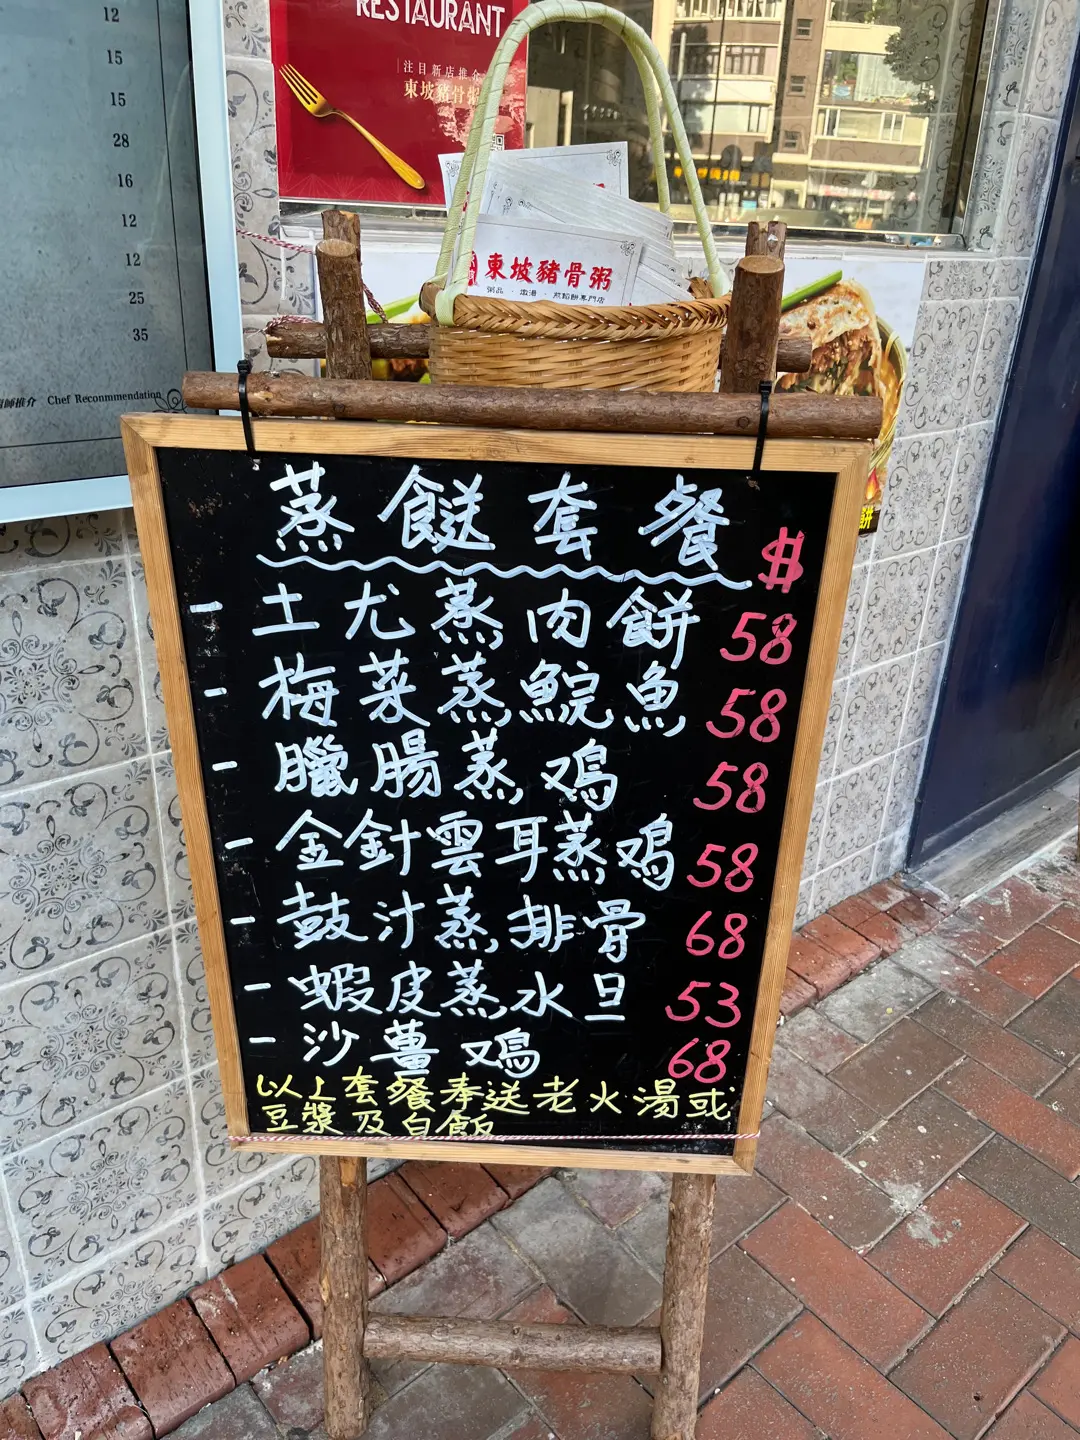 12
15
15
28
16
12
12
25
35
師推介 Chef Reconmmendation
RESTAURANT
注目新店推介
東坡豬骨粥
東坡豬骨粥
粥品 · 燉湯 · 煎餡餅專門店
餅
蒸餸套餐 $
- 土尤蒸肉餅 58
- 梅菜蒸鯇魚 58
- 臘腸蒸鸡 58
- 金針雲耳蒸鸡 58
- 鼓汁蒸排骨 68
- 蝦皮蒸水旦 53
- 沙薑鸡 68
以上套餐奉送老火湯或
豆漿及白飯